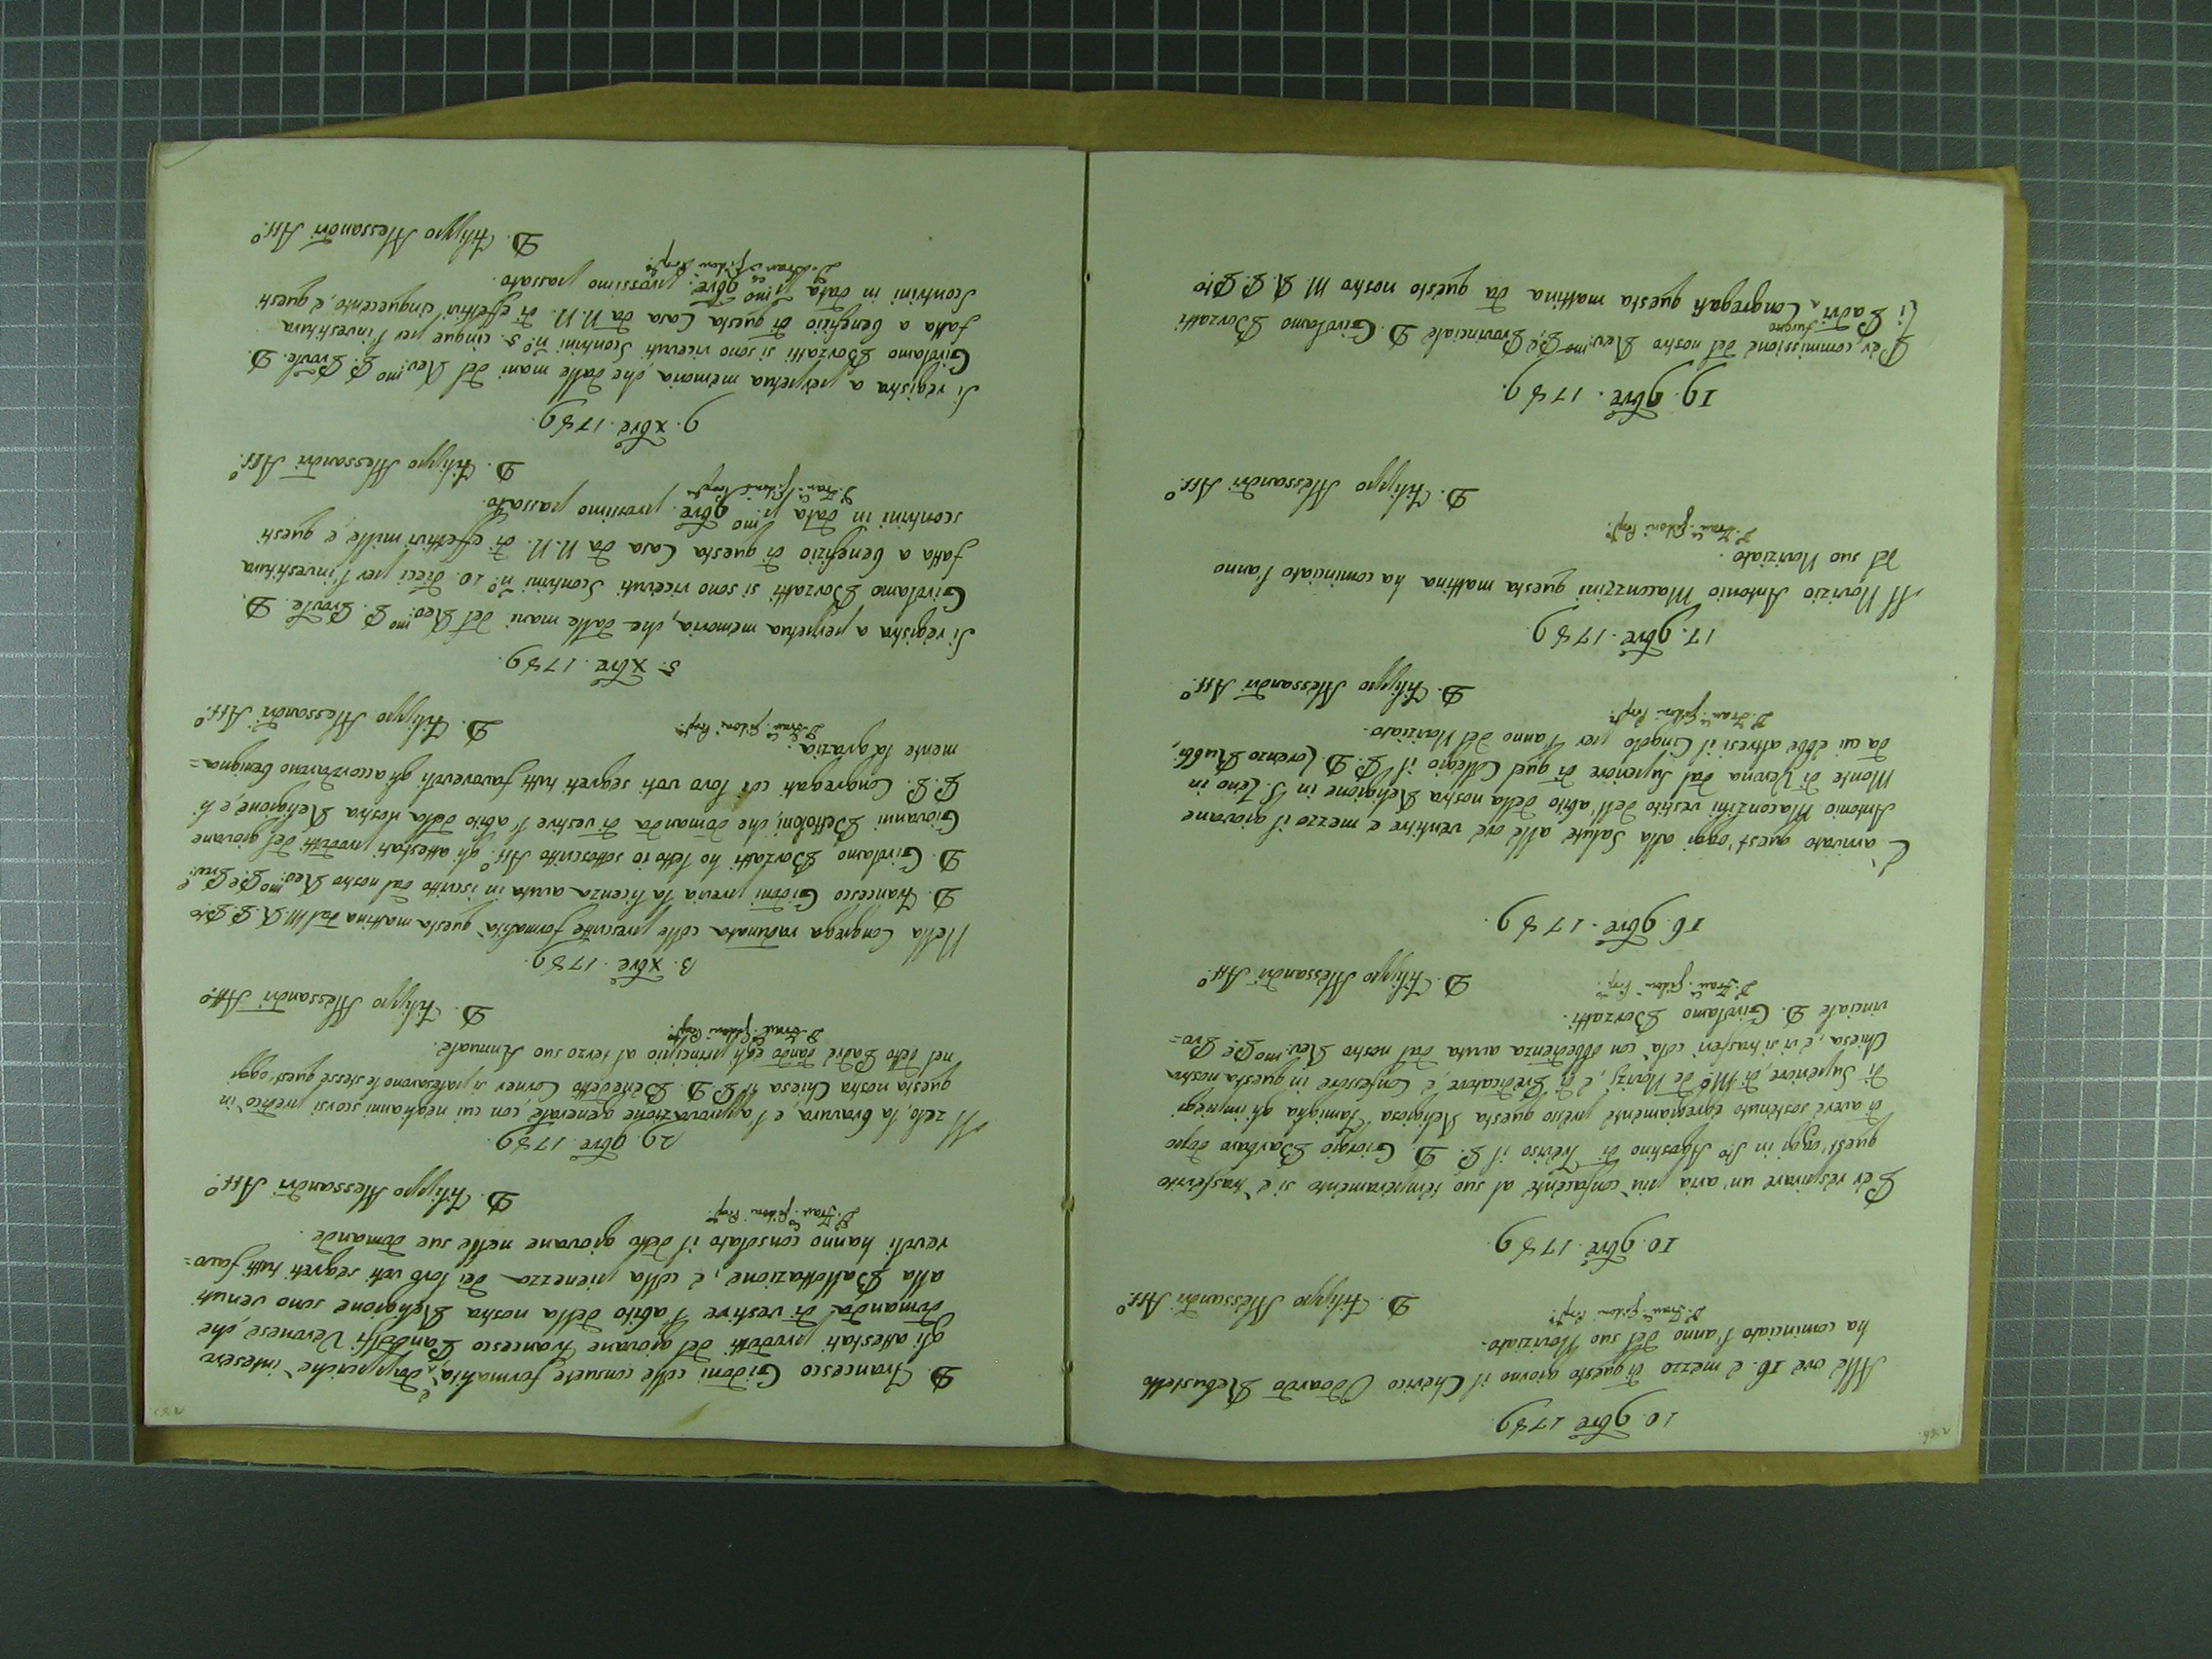 10. 9bre 1789.
Alle ore 16. e mezzo di questo giorno il Chierico Odoardo Rebustello
ha cominciato l'anno del suo Noviziato.
D. Fran.co Gidoni Prep.to
D. Filippo Alessandri Att.o
10. 9bre. 1789.
Per respirare un'aria più confacente al suo temperamento si è trasferito
quest'oggi in S.to Agostino di Treviso il P. D. Giorgio Barbaro dopo
di avere sostenuto egregiamente presso questa Religiosa Famiglia gl'impiegi
di Superiore, di M.ro de Novizj, e di Predicatore, e Confessore in questa nostra
Chiesa, e vi si trasferì colà con obbedienza avuta dal nostro Rev.mo P.e Pro=
vinciale D. Girolamo Borzatti.
D. Fran.co Gidoni Prep.to
D. Filippo Alessandri Att.o
16. 9bre. 1789.
È arrivato quest'oggi alla Salute alle ore ventitre e mezzo il giovane
Antonio Maconzini vestito dell'abito della nostra Religione in S. Zeno in
Monte di Verona dal Superiore di quel Collegio il P. D. Lorenzo Rubbi,
da cui ebbe altresì il Cingolo per l'anno del Noviziato.
D. Fran.co Gidoni Prep.to
D. Filippo Alessandri Att.o
17. 9bre. 1789.
Il Novizio Antonio Maconzini questa mattina ha cominciato l'anno
del suo Noviziato.
D. Fran.co Gidoni Prep.to
D. Filippo Alessandri Att.o
19. 9bre. 1789.
Per commissione del nostro Rev.mo P.e Provinciale D. Girolamo Borzatti
li Padri furono Congregati questa mattina da questo nostro M. R. P. P.to
D. Francesco Gidoni colle consuete formalità, e dappoiché intesero
gli attestati prodotti del giovane Francesco Landolfi Veronese, che
domanda di vestire l'abito della nostra Religione sono venuti
alla Ballottazione, e colla pienezza dei loro voti segreti tutti favo=
revoli hanno consolato il detto giovane nelle sue domande.
D. Fran.co Gidoni Prep.to
D. Filippo Alessandri Att.o
29. 9bre. 1789.
Il zelo, la bravura, e l'approvazione generale, con cui negl'anni scorsi predicò in
questa nostra Chiesa il P. D. Benedetto Corner si palesarono le stesse quest'oggi
nel detto Padre dando egli principio al terzo suo Annuale.
D. Fran.co Gidoni Prep.to
D. Filippo Alessandri Att.o
3. Xbre. 1789.
Nella Congrega radunata colle prescritte formalità questa mattina dal M. R. P. P.to
D. Francesco Gidoni previa la licenza avuta in iscritto dal nostro Rev.mo P.e Prov.le
D. Girolamo Borzatti ho letto io sottoscritto Att.o gli attestati prodotti del giovane
Giovanni Bettoloni, che domanda di vestire l'abito della nostra Religione e li
P. P. Congregati coi loro voti segreti tutti favorevoli gli accordarono benigna=
mente la grazia.
D. Fran.co Gidoni Prep.to
D. Filippo Alessandri Att.o
5. Xbre. 1789.
Si registra a perpetua memoria, che dalle mani del Rev.mo P. Prov.le D.
Girolamo Borzatti si sono ricevuti Scontrini n.o 10. dieci per l'investitura
fatta a benefizio di questa Casa da N. N. di effettivi mille, e questi
scontrini in data p.mo 9bre. prossimo passato.
D. Fran.co Gidoni Prep.to
D. Filippo Alessandri Att.o
9. Xbre. 1789.
Si registra a perpetua memoria, che dalle mani del Rev.mo P. Prov.le D.
Girolamo Borzatti si sono ricevuti Scontrini n.o 5. cinque per l'investitura
fatta a benefizio di questa Casa da N. N. di effettivi cinquecento, e questi
Scontrini in data p.mo 9bre. prossimo passato.
D. Fran.co Gidoni Prep.to
D. Filippo Alessandri Att.o